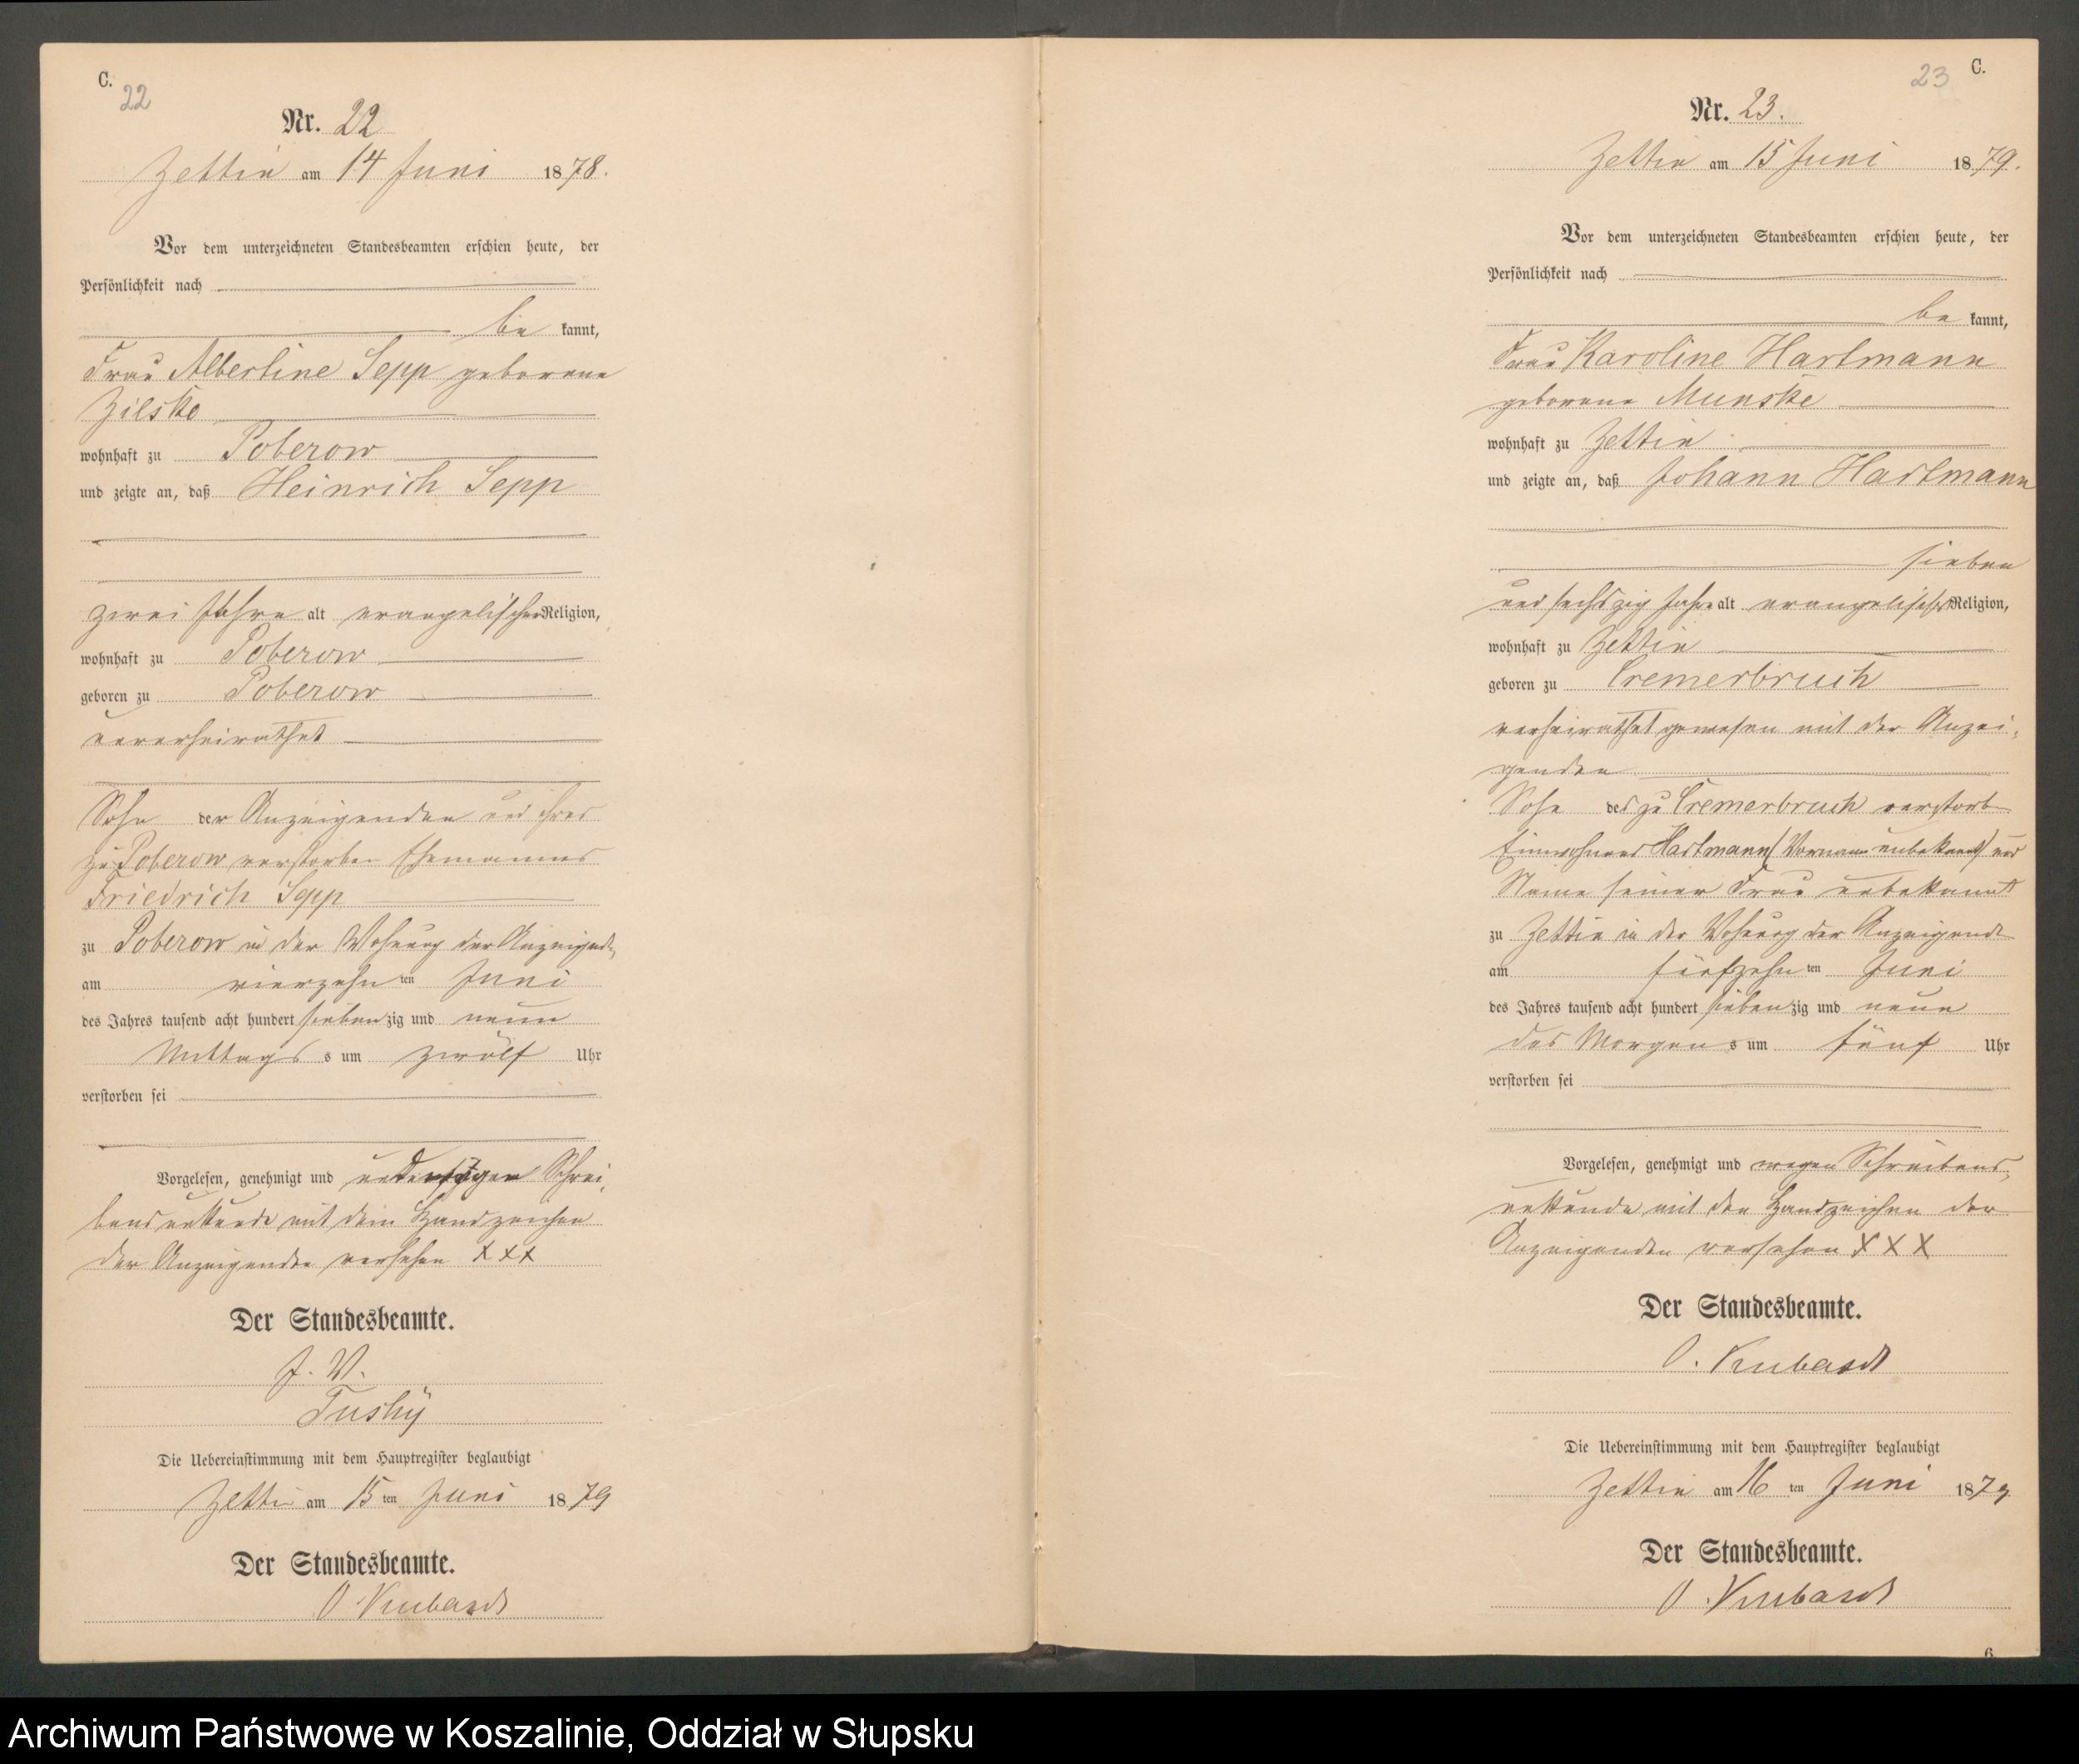 C.
22
Nr. 22
Zettin am 14 Juni 1878.
Vor dem unterzeichneten Standesbeamten erschien heute, der
Persönlichkeit nach
be kannt,
Frau Albertine Sepp geborene
Zilske
wohnhaft zu Poberow
und zeigte an, daß Heinrich Sepp
zwei Jahre alt evangelischer Religion,
wohnhaft zu Poberow
geboren zu Poberow
unverheirathet
Sohn der Anzeigenden und ihres
zu Poberow verstorben Ehemannes
Friedrich Sepp
zu Poberow in der Wohnung der Anzeigenden
am vierzehn ten Juni
des Jahres tausend acht hundert sieben zig und neun
Mittags s um zwölf Uhr
verstorben sei
Vorgelesen, genehmigt und Schrei,
bensunkunde mit dem Handzeichen
der Anzeigenden versehen XXX
Der Standesbeamte.
J. V.
Tushÿ
Die Uebereinstimmung mit dem Hauptregister beglaubigt
Zettin am 15 ten Juni 1879
Der Standesbeamte.
O.
23
C.
Nr. 23.
Zettin am 15 Juni 1879.
Vor dem unterzeichneten Standesbeamten erschien heute, der
Persönlichkeit nach
be kannt,
Frau Karoline Hartmann
geborene Munske
wohnhaft zu Zettin
und zeigte an, daß Johann Hartmann
sieben
und sechszig Jahre alt evangelischer Religion,
wohnhaft zu Zettin
geboren zu Cremerbruch
verheirathet gewesen mit der Anzei,
genden
Sohn des zu Cremerbruch verstorb
Einwohners Hartmann (Vorname unbekannt) und
Name seiner Frau unbekannt
zu Zettin in der Wohnung der Anzeigende
am fünfzehn ten Juni
des Jahres tausend acht hundert sieben zig und neun
des Morgen s um fünf Uhr
verstorben sei
Vorgelesen, genehmigt und wegen Schreibens,
unkunde mit den Handzeichen der
Anzeigenden versehen XXX
Der Standesbeamte.
O.
Die Uebereinstimmung mit dem Hauptregister beglaubigt
Zettin am 16 ten Juni 1879
Der Standesbeamte.
O.
6
Archiwum Państwowe w Koszalinie, Oddział w Słupsku